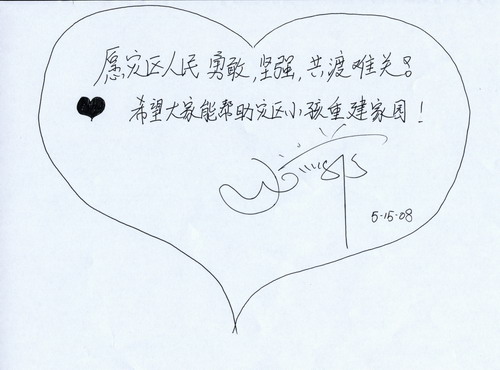 愿灾区人民勇敢,坚强,共渡难关。
希望大家能帮助灾区小孩重建家园!
5-15-08